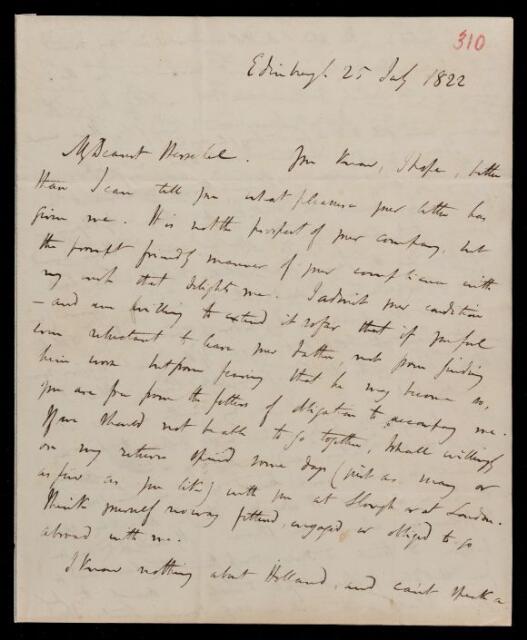 310
Edinburgh 25 July 1822
My Dearest Herschel. You know, I hope, better
than I can tell you what pleasure your letter has
given me. It is not the prospect of your company, but
the prompt friendly manner of your compliance with
my wish that delights me. I admit your condition
– and am willing to extend it so far that if you feel
even reluctant to leave your Father, not from finding
him worse but from fearing that he may become so,
you are free from the fetters of obligation to accompany me.
If we should not be able to go together, I shall willingly
on my return spend some days (just as many or
as few as you like) with you at Slough or at London.
Think yourself no way fettered, engaged, or obliged to go
abroad with me.
I know nothing about Holland, and can't speak a